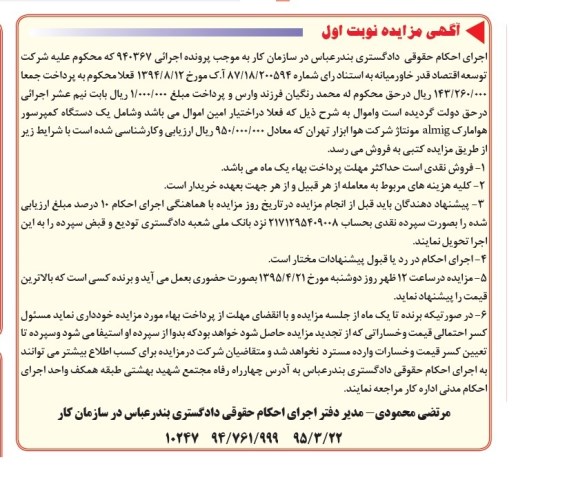 آگهی مزایده نوبت اول
اجرای احکام حقوقی دادگستری بندرعباس در سازمان کار به موجب پرونده اجرائی ۹۴۰۳۶۷ که محکوم علیه شرکت
توسعه اقتصاد قدر خاورمیانه به استناد رای شماره ۸۷/۱۸/۲۰۰۵۹۴ آ.ک مورخ ۱۳۹۴/۸/۱۲ فعلا محکوم به پرداخت جمعا
۱۴۳/۲۶۰/۰۰۰ ریال درحق محکوم له محمد رنگیان فرزند وارس و پرداخت مبلغ ۱/۰۰۰/۰۰۰ ریال بابت نیم عشر اجرائی
درحق دولت گردیده است واموال به شرح ذیل که فعلا دراختیار امین اموال می باشد وشامل یک دستگاه کمپرسور
هوامارک almig مونتاژ شرکت هوا ابزار تهران که معادل ۹۵۰/۰۰۰/۰۰۰ ریال ارزیابی وکارشناسی شده است با شرایط زیر
از طریق مزایده کتبی به فروش می رسد.
۱- فروش نقدی است حداکثر مهلت پرداخت بهاء یک ماه می باشد.
۲- کلیه هزینه های مربوط به معامله از هر قبیل و از هر جهت بعهده خریدار است.
۳- پیشنهاد دهندگان باید قبل از انجام مزایده در تاریخ روز مزایده با هماهنگی اجرای احکام ۱۰ درصد مبلغ ارزیابی
شده را بصورت سپرده نقدی بحساب ۲۱۷۱۲۹۵۴۰۹۰۰۸ نزد بانک ملی شعبه دادگستری تودیع و قبض سپرده را به این
اجرا تحویل نمایند.
۴- اجرای احکام در رد یا قبول پیشنهادات مختار است.
۵- مزایده درساعت ۱۲ ظهر روز دوشنبه مورخ ۱۳۹۵/۴/۲۱ بصورت حضوری بعمل می آید و برنده کسی است که بالاترین
قیمت را پیشنهاد نماید.
۶- در صورتیکه برنده تا یک ماه از جلسه مزایده و با انقضای مهلت از پرداخت بهاء مورد مزایده خودداری نماید مسئول
کسر احتمالی قیمت وخساراتی که از تجدید مزایده حاصل شود خواهد بود که بدوا از سپرده او استیفا می شود وسپرده تا
تعیین کسر قیمت وخسارات وارده مسترد نخواهد شد و متقاضیان شرکت درمزایده برای کسب اطلاع بیشتر می توانند
به اجرای احکام حقوقی دادگستری بندرعباس به آدرس چهارراه رفاه مجتمع شهید بهشتی طبقه همکف واحد اجرای
احکام مدنی اداره کار مراجعه نمایند.
مرتضی محمودی- مدیر دفتر اجرای احکام حقوقی دادگستری بندرعباس در سازمان کار
۹۵/۳/۲۲ ۹۴/۷۶۱/۹۹۹ ۱۰۲۴۷